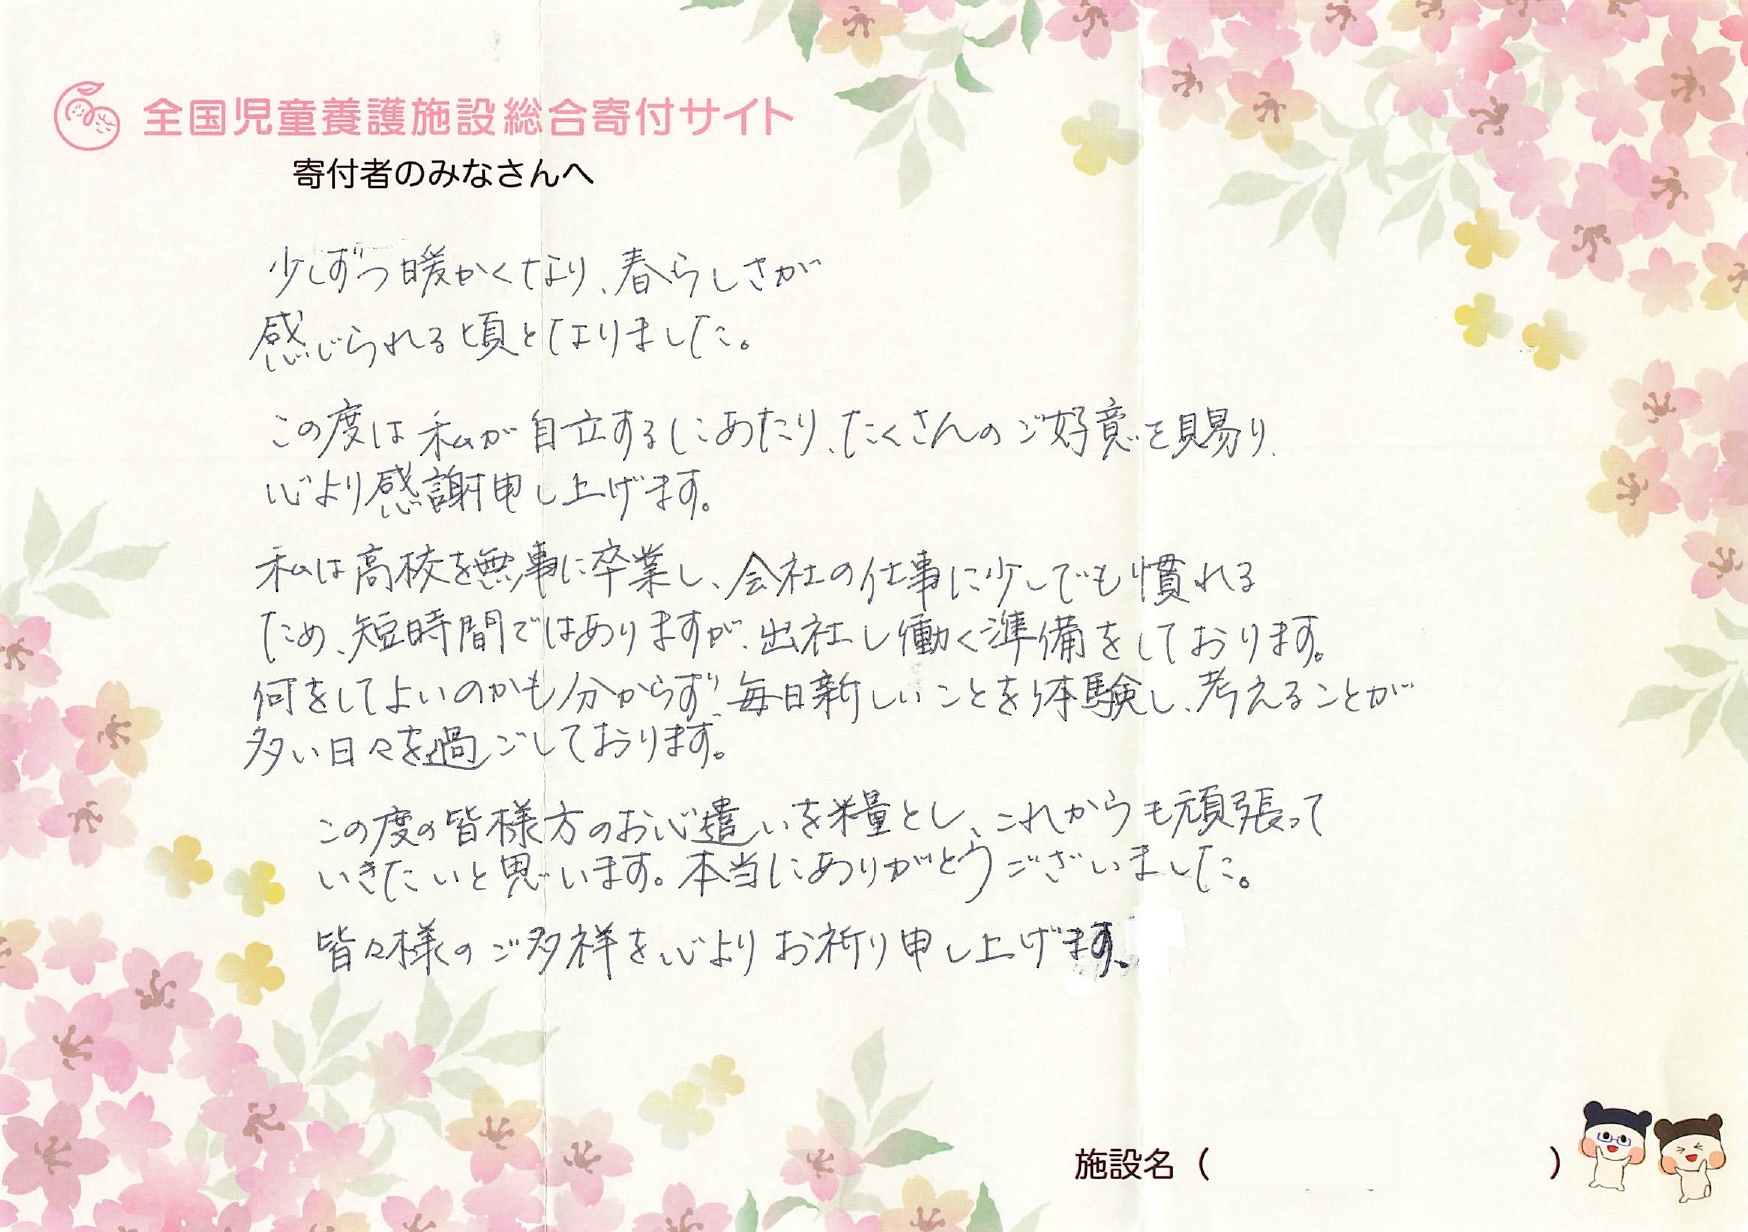 全国児童養護施設総合寄付サイト
寄付者のみなさんへ
少しずつ暖かくなり、春らしさが
感じられる頃となりました。
この度は私が自立するにあたり、たくさんのご好意を賜り、
心より感謝申し上げます。
私は高校を無事に卒業し、会社の仕事に少しでも慣れる
ため、短時間ではありますが、出社し働く準備をしております。
何をしてよいのかも分からず、毎日新しいことを体験し、考えることが
多い日々を過ごしております。
この度の皆様方のお心遣いを糧とし、これからも頑張って
いきたいと思います。本当にありがとうございました。
皆々様のご多祥を心よりお祈り申し上げます。
施設名（　　　）